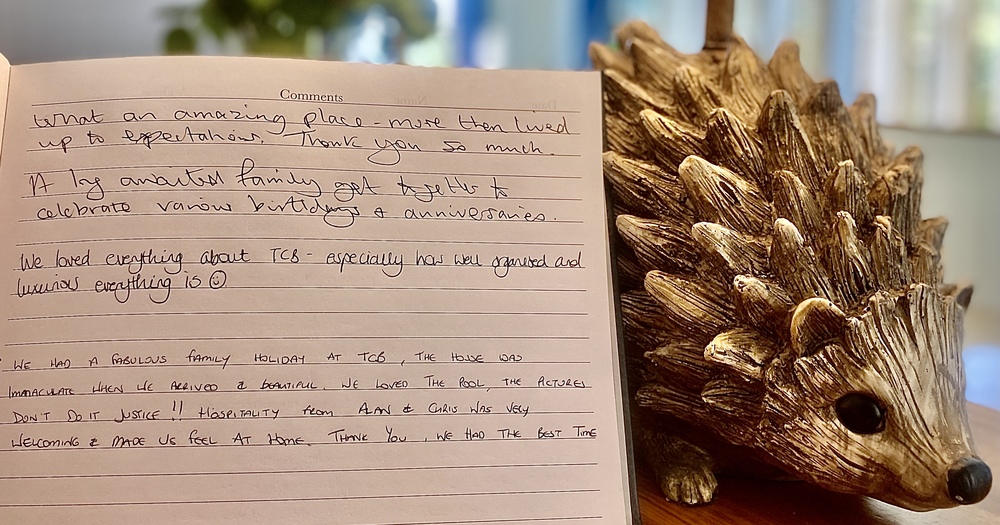 Comments
What an amazing place - more then lived
up to expectations. Thank you so much.
A long awaited family get together to
celebrate various birthdays & anniversaries.
We loved everything about TCB - especially how well organised and
luxurious everything is ☺
WE HAD A FABULOUS FAMILY HOLIDAY AT TCB, THE HOUSE WAS
IMMACULATE WHEN WE ARRIVED & BEAUTIFUL. WE LOVED THE POOL, THE PICTURES
DON'T DO IT JUSTICE!! HOSPITALITY FROM ALAN & CHRIS WAS VERY
WELCOMING & MADE US FEEL AT HOME. THANK YOU, WE HAD THE BEST TIME